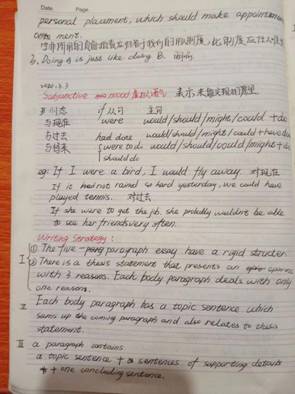 Date Page
personal placement, which should make appointment
on ment.
3. Doing A is just like doing B.
2020.3.3
Subjunctive mood 虚拟语气 表示未真实现的愿望
时态 if 从句 主句
与现在 were would/should/might/could + do
与过去 had done would/should/might/could + have done
与将来 were to do would/should/could/might + do
should do
eg: If I were a bird, I would fly away. 对现在
If it had not rained so hard yesterday, we could have
played tennis. 对过去
If she were to get the job, she probably wouldn't be able
to see her friends very often.
Writing Strategy:
① The five-paragraph essay have a rigid structer
② There is a thesis statement that presents an
with 3 reasons. Each body paragraph deals with only
one reasons.
II Each body paragraph has a topic sentence which
sums up the coming paragraph and also relates to thesis
statement.
III a paragraph contains
a topic sentence + sentences of supporting details
+ one concluding sentence.